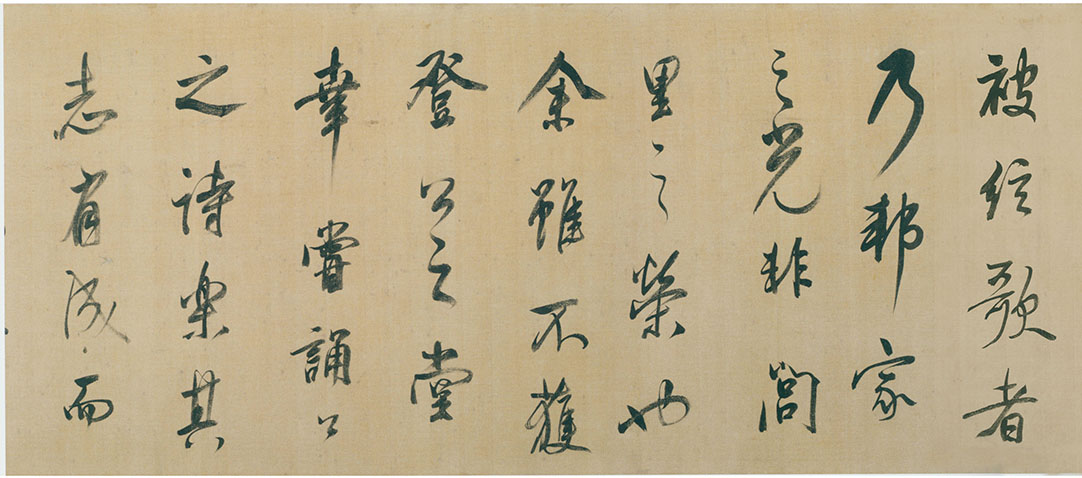 被絃歌者
乃邦家
之光非閭
里之榮也
余雖不獲
登公之堂
幸嘗誦公
之詩樂其
志有成而